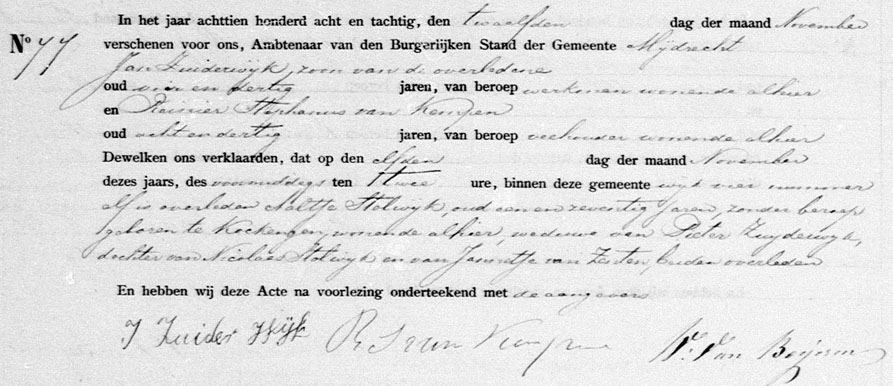 In het jaar achttien honderd acht en tachtig, den twaalfden dag der maand November
No 77 verschenen voor ons, Ambtenaar van den Burgerlijken Stand der Gemeente Mijdrecht
Jan Zuiderwijk, zoon van de overledene
oud vier en dertig jaren, van beroep werkman wonende alhier
en Reinier Stephanus van Kempen
oud acht en dertig jaren, van beroep veehouder wonende alhier
Dewelken ons verklaarden, dat op den elfden dag der maand November
dezes jaars, des voormiddags ten twee ure, binnen deze gemeente wijk vier nummer
elf is overleden Aaltje Stolwijk, oud een en zeventig jaren, zonder beroep
geboren te Kockengen, wonende alhier, weduwe van Pieter Zuyderwyk,
dochter van Nicolaas Stolwyk en van Jannetje van Zesten, beiden overleden
En hebben wij deze Acte na voorlezing onderteekend met de aangevers
J Zuider Wijk R S van Kempen W. Van